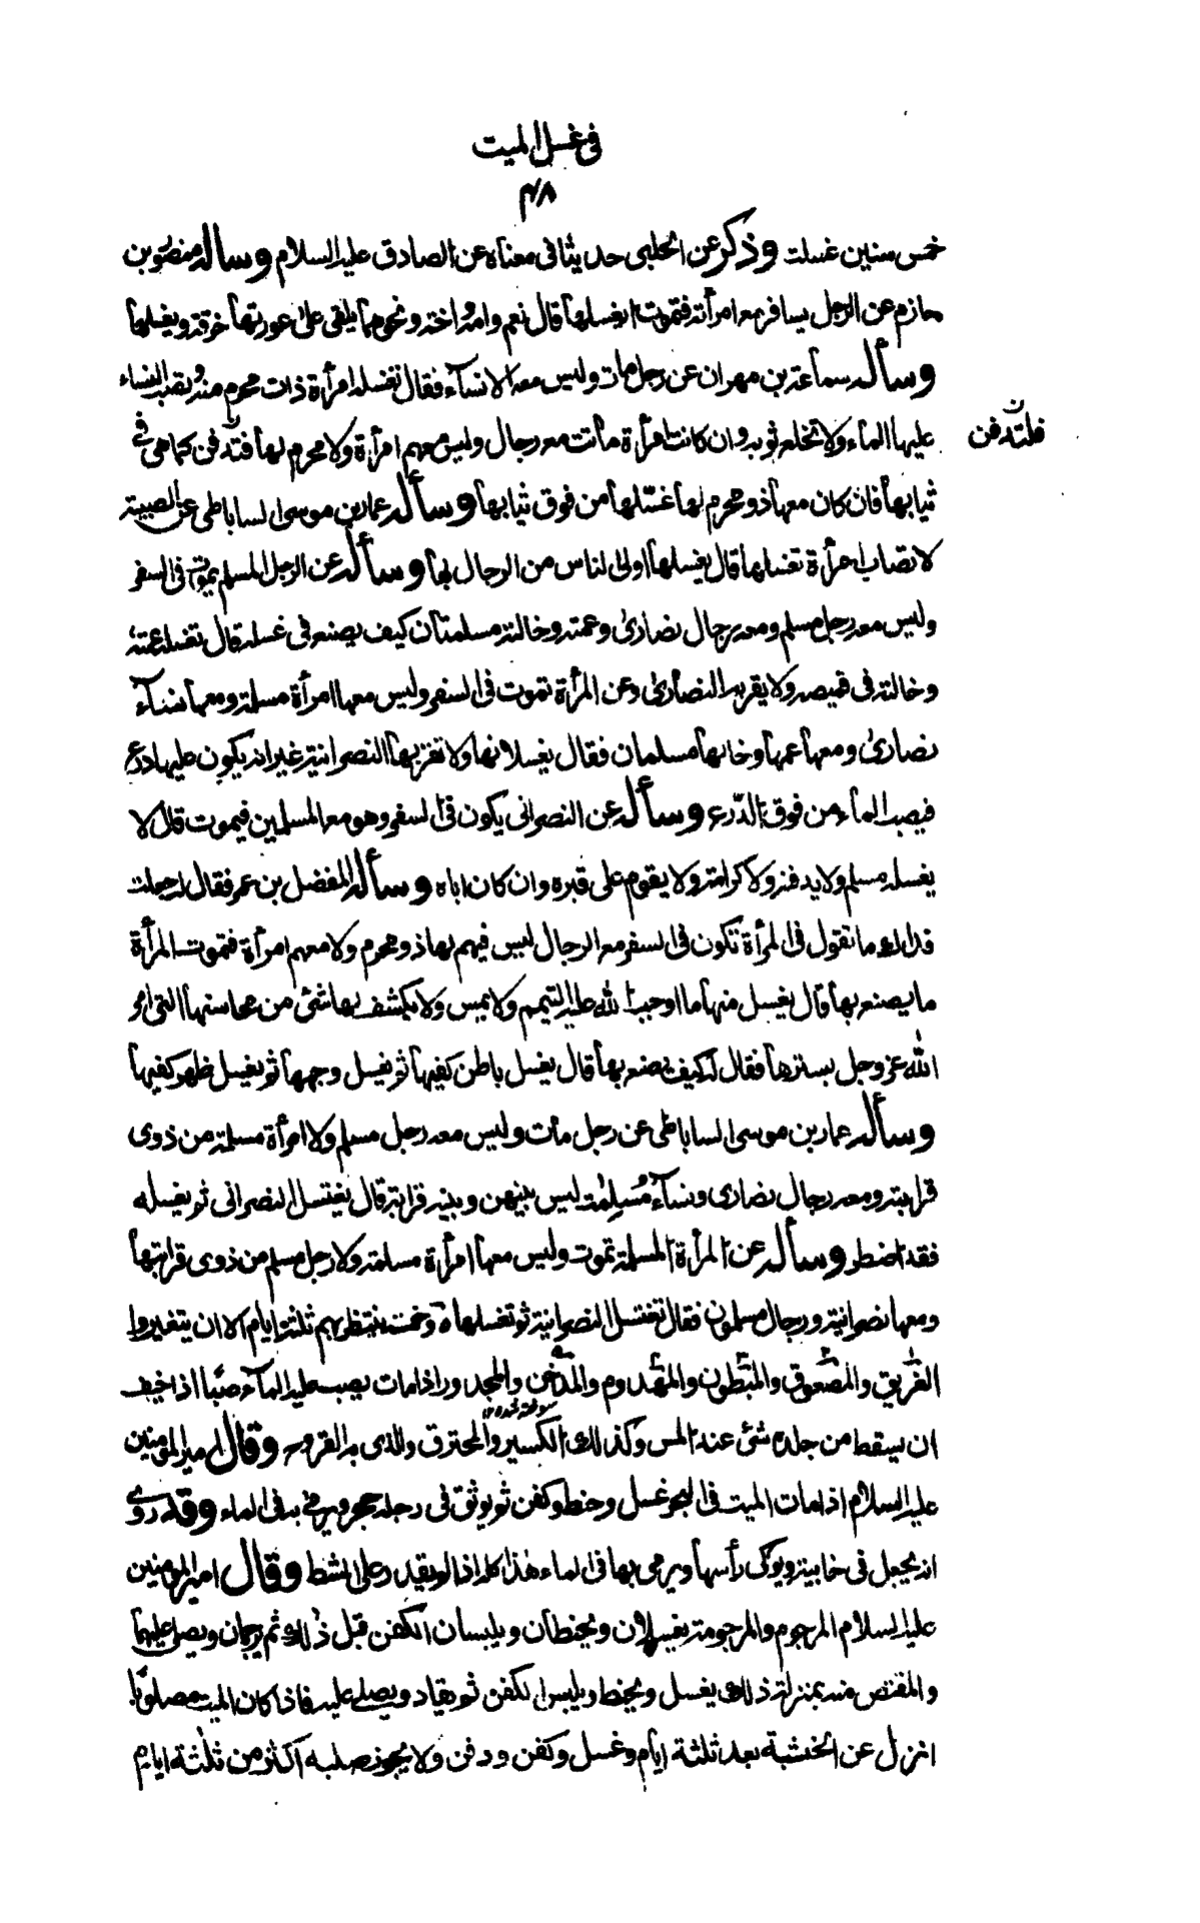 في غسل الميت
٤٨
خمس سنين غسلت وذكر عن الحلبي حديثا في معناه عن الصادق عليه السلام وساله منصور بن
حازم عن الرجل يسافر مع امرأته فتموت ايغسلها قال نعم وامه واخته ونحوهما يلقى على عورتها خرقة ويغسلها
وسأله سماعة بن مهران عن رجل مات وليس معه الا نسآء فقال تغسله امرأة ذات محرم منه وتصب النساء
عليها المآء ولا تخلع ثوبه وان كانت امرأة ماتت مع رجال وليس معهم امرأة ولا محرم لها فتدفن كما هي في
فلتدفن
ثيابها فان كان معها ذو محرم لها غسّلها من فوق ثيابها وسأله عمار بن موسى الساباطي عن الصبية
لا تصاب امرأة تغسلها قال يغسلها اولى الناس من الرجال بها وسأله عن الرجل المسلم يموت في السفر
وليس معه رجل مسلم ومعه رجال نصارى وعمته وخالته مسلمتان كيف يصنع في غسله قال تغسله عمته
وخالته في قميصه ولا يقربه النصارى وعن المرأة تموت في السفر وليس معها امرأة مسلمة ومعها نسآء
نصارى ومعها عمها وخالها مسلمان فقال يغسلانها ولا تقربها النصرانية غير انه يكون عليها درع
فيصب المآء من فوق الدّرع وسأله عن النصراني يكون في السفر وهو مع المسلمين فيموت قال لا
يغسله مسلم ولا يدفنه ولا كرامة ولا يقوم على قبره وان كان اباه وسأله المفضل بن عمر فقال له جعلت
فداك ما تقول في المرأة تكون في السفر مع الرجال ليس فيهم لها ذو محرم ولا معهم امرأة فتموت المرأة
ما يصنع بها قال يغسل منها ما اوجب الله عليه التيمم ولا يمس ولا يكشف لها شئ من محاسنها التي امر
الله عز وجل بسترها فقال له كيف يصنع بها قال يغسل باطن كفيها ثم يغسل وجهها ثم يغسل ظهر كفيها
وسأله عمار بن موسى الساباطي عن رجل مات وليس معه رجل مسلم ولا امرأة مسلمة من ذوي
قرابته ومعه رجال نصارى ونسآء مُسلمٰت ليس بينهن وبينه قرابة قال يغتسل النصراني ثم يغسله
فقد اضطر وسأله عن المرأة المسلمة تموت وليس معها امرأة مسلمة ولا رجل مسلم من ذوي قرابتها
ومعها نصرانية ورجال مسلمون فقال تغتسل النصرانية ثم تغسلها وخمسة ينتظر بهم ثلثة ايام الا ان يتغيروا
الغريق والمصعوق والمبطون والمهدوم والمدخن والمجدور اذا مات يصب عليه المآء صبّا اذا خيف
ان يسقط من جلده شئ عند المس وكذلك الكسير والمحترق والذي به القروح وقال امير المؤمنين
عليه السلام اذا مات الميت في البحر غسل وحنط وكفن ثم يوثق في رجله حجر ويرمى به في الماء وقد روي
انه يجعل في خابية ويوكى رأسها ويرمى بها في الماء هذا كله اذا لم يقدر على الشط وقال امير المؤمنين
عليه السلام المرجوم والمرجومة يغسلان ويحنطان ويلبسان الكفن قبل ذلك ثم يرجمان ويصلى عليهما
والمقتص منه بمنزلة ذلك يغسل ويحنط ويلبس الكفن ثم يقاد ويصلى عليه فاذا كان الميت مصلوبا
انزل عن الخشبة بعد ثلثة ايام وغسل وكفن ودفن ولا يجوز صلبه اكثر من ثلثة ايام